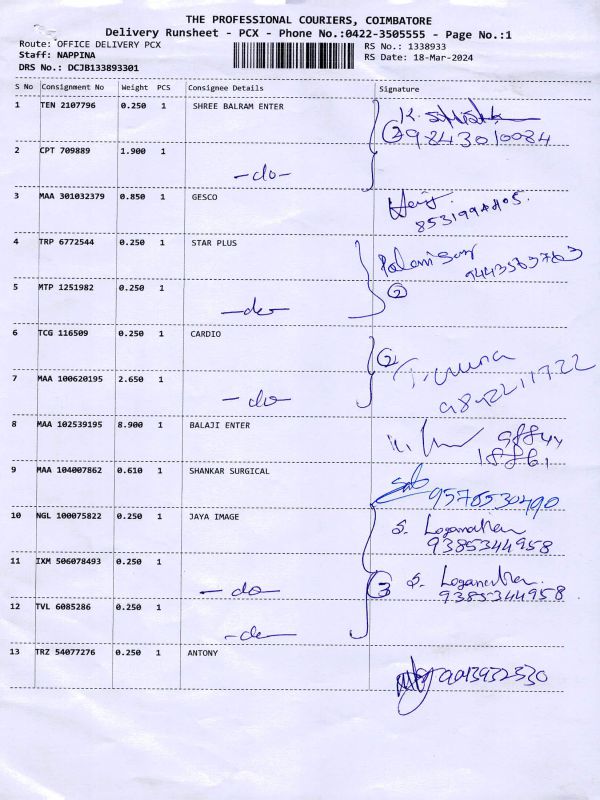 THE PROFESSIONAL COURIERS, COIMBATORE
Delivery Runsheet - PCX - Phone No.:0422-3505555 - Page No.:1
Route: OFFICE DELIVERY PCX
RS No.: 1338933
Staff: NAPPINA
RS Date: 18-Mar-2024
DRS No.: DCJB133893301
S No Consignment No Weight PCS Consignee Details Signature
1 TEN 2107796 0.250 1 SHREE BALRAM ENTER K.
② 9843010084
2 CPT 709889 1.900 1 -do-
3 MAA 301032379 0.850 1 GESCO
4 TRP 6772544 0.250 1 STAR PLUS
5 MTP 1251982 0.250 1 -do- ②
6 TCG 116509 0.250 1 CARDIO ②
7 MAA 100620195 2.650 1 -do-
8 MAA 102539195 8.900 1 BALAJI ENTER
9 MAA 104007862 0.610 1 SHANKAR SURGICAL
9576530490
10 NGL 100075822 0.250 1 JAYA IMAGE S. Loganathan
9385344958
11 IXM 506078493 0.250 1 -do- ③ S. Loganathan
9385344958
12 TVL 6085286 0.250 1 -do-
13 TRZ 54077276 0.250 1 ANTONY